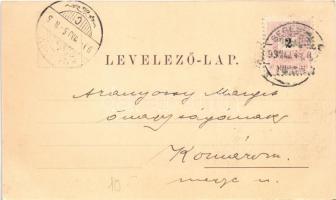 LEVELEZŐ-LAP.
Aranyossy Margit
őnagyságának
Komárom
megye u.
10